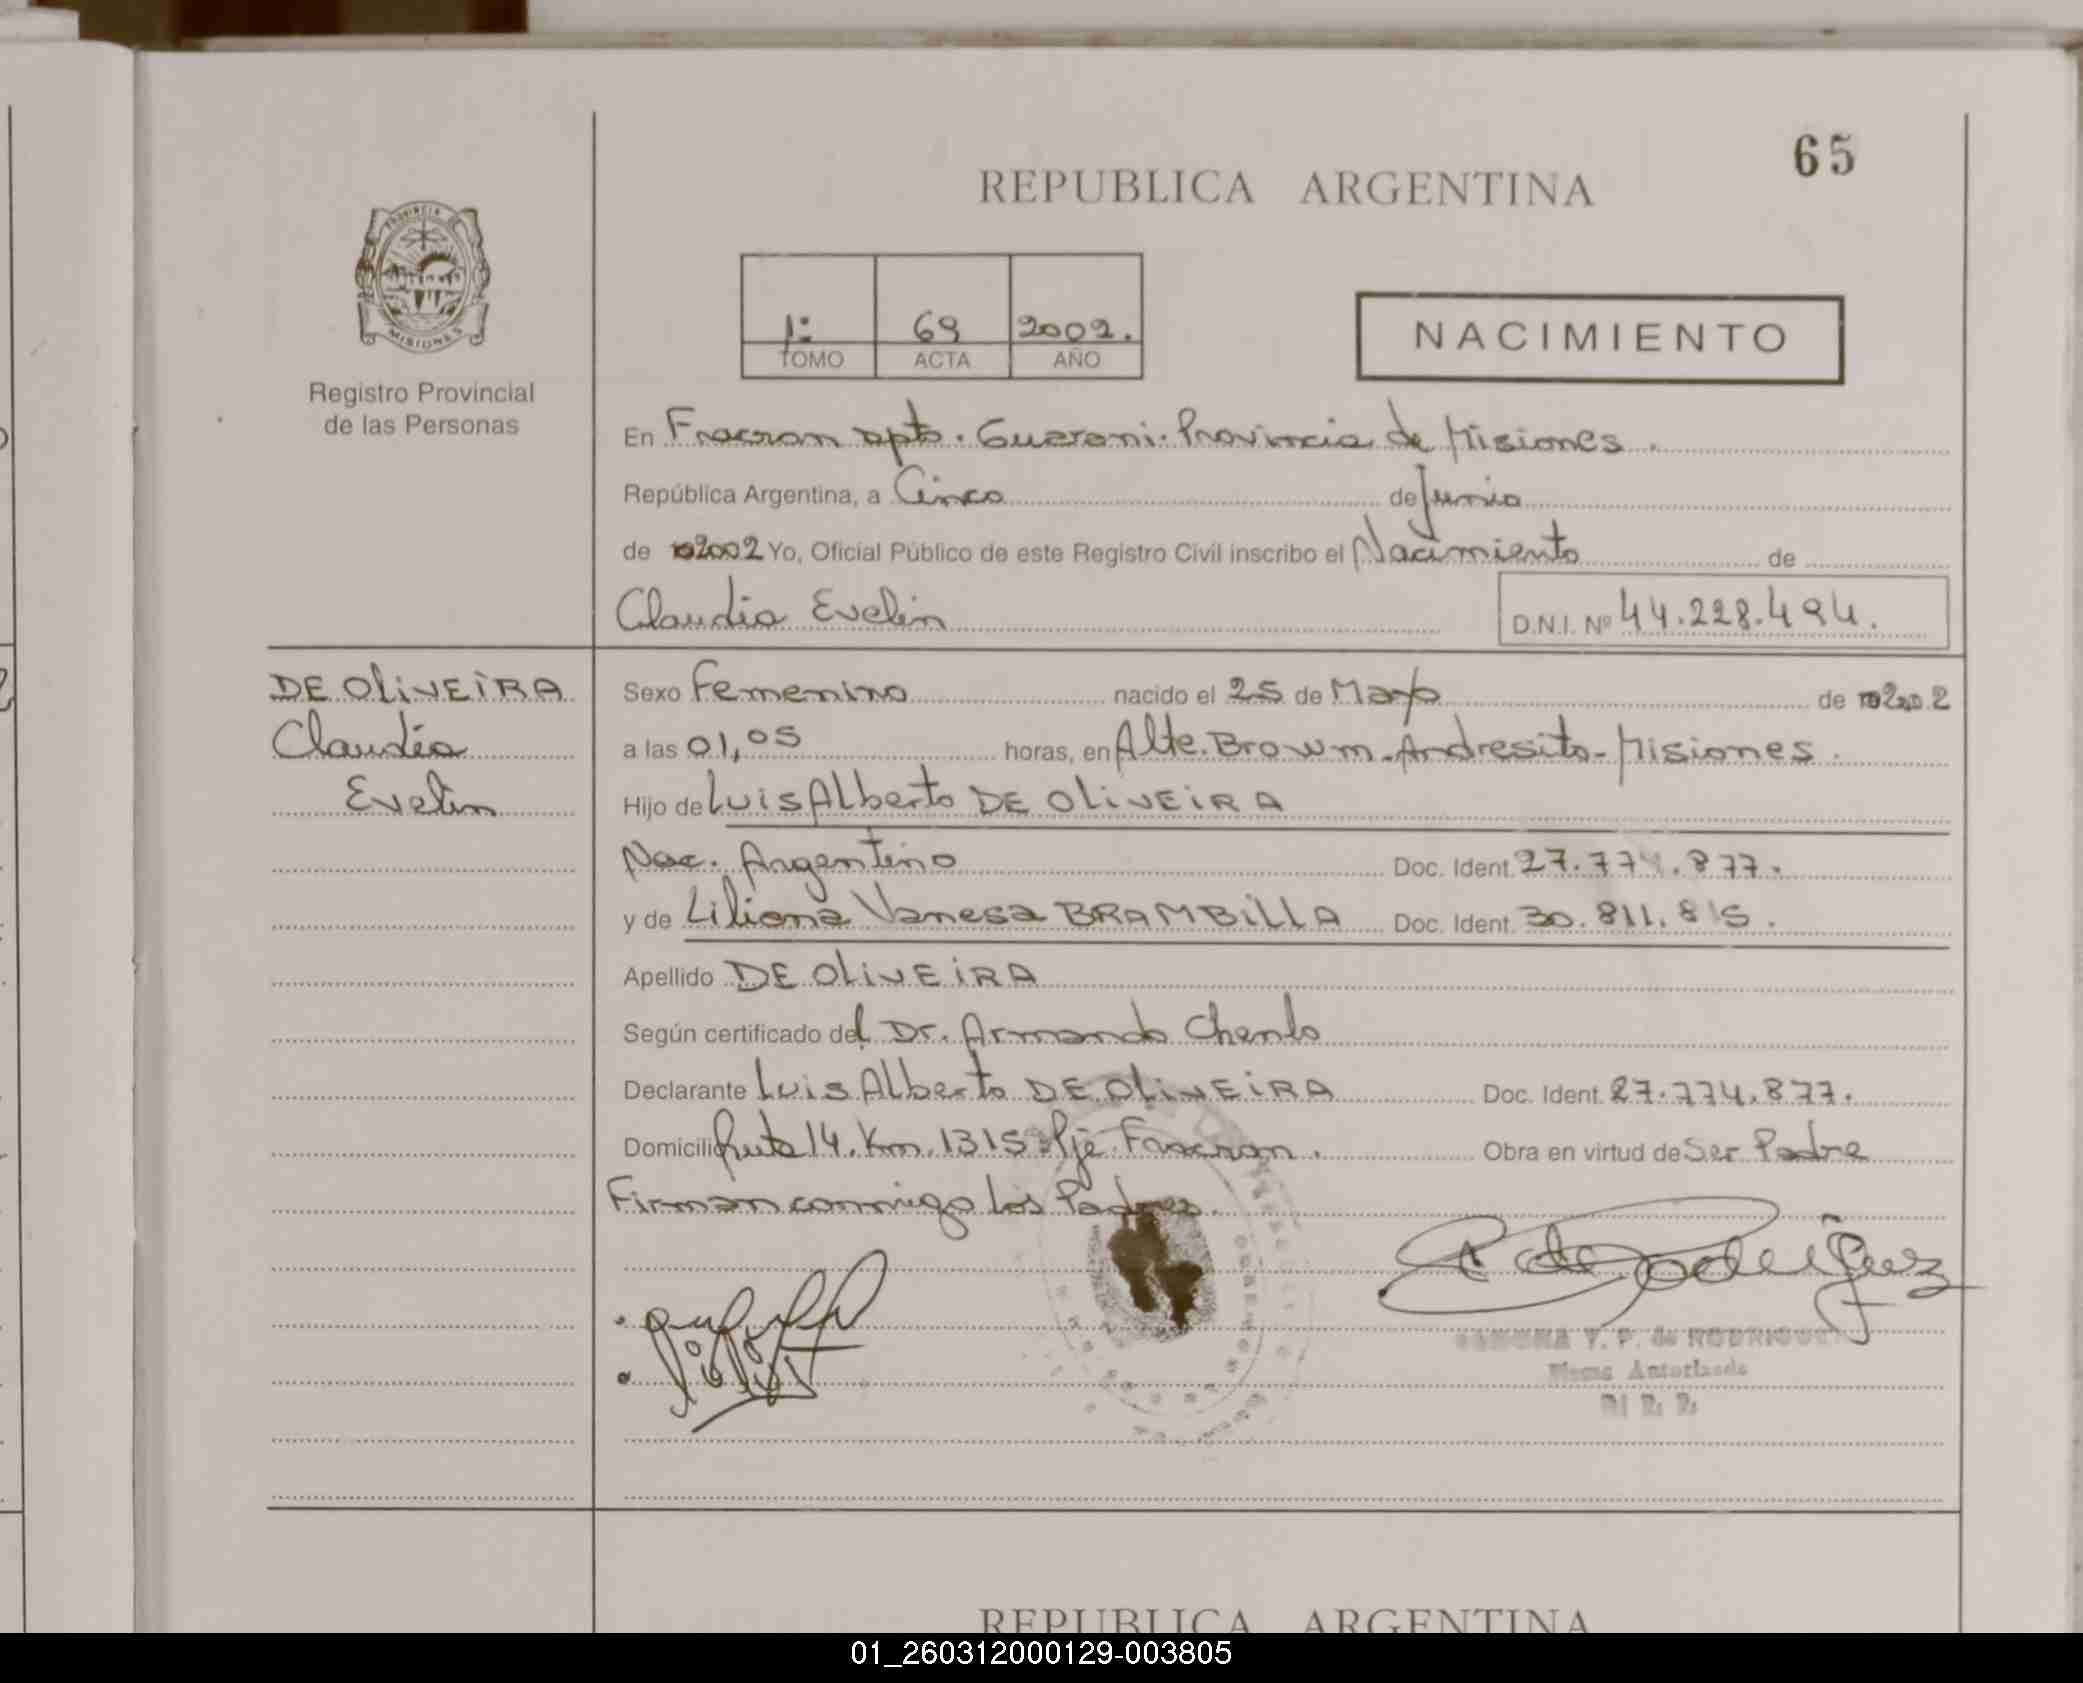 65
REPUBLICA ARGENTINA
PROVINCIA DE
MISIONES
Registro Provincial
de las Personas
1º 69 2002.
TOMO ACTA AÑO
NACIMIENTO
En Fracran Dpto. Guarani. Provincia de Misiones.
República Argentina, a Cinco de Junio
de 2002 Yo, Oficial Público de este Registro Civil inscribo el Nacimiento de
Claudia Evelin D.N.I. Nº 44.228.494.
DE OLIVEIRA
Claudia
Evelin
Sexo Femenino nacido el 25 de Mayo de 2002
a las 01,05 horas, en Alte. Brown-Andresito-Misiones.
Hijo de Luis Alberto DE OLIVEIRA
Nac. Argentino Doc. Ident. 27.774.877.
y de Liliana Vanesa BRAMBILLA Doc. Ident. 30.811.815.
Apellido DE OLIVEIRA
Según certificado del Dr. Armando Chenlo
Declarante Luis Alberto DE OLIVEIRA Doc. Ident. 27.774.877.
Domicilio Ruta 14. Km. 1315 Pje. Fracran. Obra en virtud de Ser Padre
Firman conmigo los Padres.
V. P. de RODRIGUEZ
Firma Autorizada
REPUBLICA ARGENTINA
01_260312000129-003805